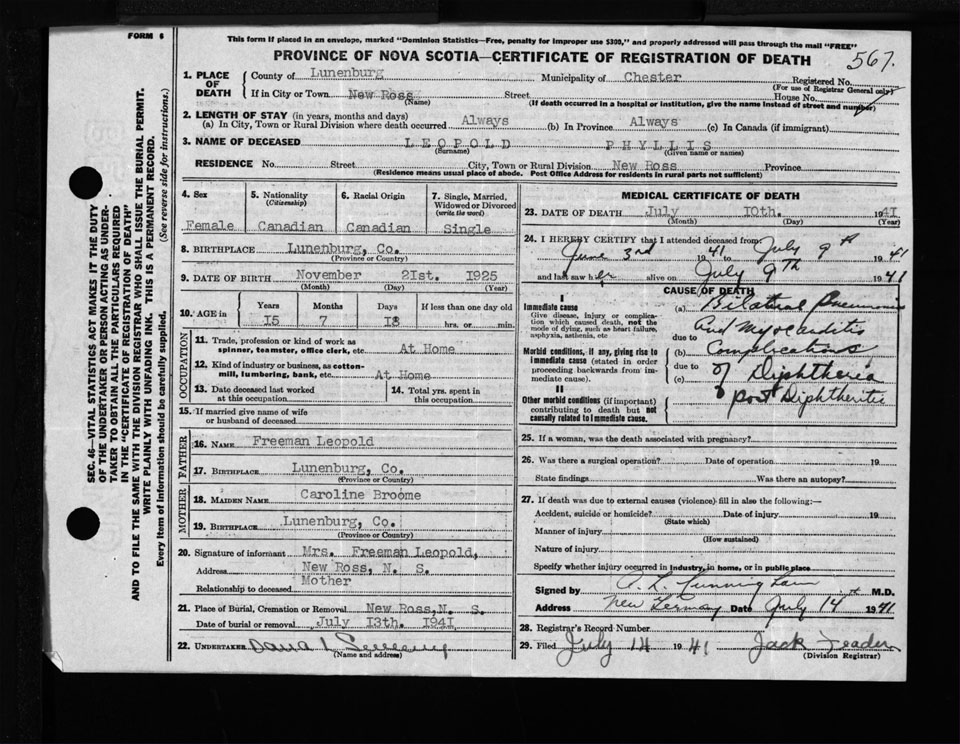 FORM 6
This form if placed in an envelope, marked "Dominion Statistics—Free, penalty for improper use $300," and properly addressed will pass through the mail "FREE"
PROVINCE OF NOVA SCOTIA—CERTIFICATE OF REGISTRATION OF DEATH
567.
1. PLACE OF DEATH County of Lunenburg Municipality of Chester Registered No.
(For use of Registrar General only)
If in City or Town New Ross Street House No.
(Name) (If death occurred in a hospital or institution, give the name instead of street and number)
2. LENGTH OF STAY (in years, months and days)
(a) In City, Town or Rural Division where death occurred Always (b) In Province Always (c) In Canada (if immigrant)
3. NAME OF DECEASED LEOPOLD PHYLLIS
(Surname) (Given name or names)
RESIDENCE No. Street City, Town or Rural Division New Ross Province
(Residence means usual place of abode. Post Office Address for residents in rural parts not sufficient)
4. Sex 5. Nationality (Citizenship) 6. Racial Origin 7. Single, Married, Widowed or Divorced (write the word)
Female Canadian Canadian Single
8. BIRTHPLACE Lunenburg, Co.
(Province or Country)
9. DATE OF BIRTH November 21st. 1925
(Month) (Day) (Year)
10. AGE in Years Months Days If less than one day old
15 7 18 hrs. or min.
OCCUPATION
11. Trade, profession or kind of work as spinner, teamster, office clerk, etc. At Home
12. Kind of industry or business, as cotton-mill, lumbering, bank, etc. At Home
13. Date deceased last worked at this occupation 14. Total yrs. spent in this occupation
15. If married give name of wife or husband of deceased
FATHER
16. NAME Freeman Leopold
17. BIRTHPLACE Lunenburg, Co.
(Province or Country)
MOTHER
18. MAIDEN NAME Caroline Broome
19. BIRTHPLACE Lunenburg, Co.
(Province or Country)
20. Signature of informant Mrs. Freeman Leopold,
Address New Ross, N. S.
Relationship to deceased Mother
21. Place of Burial, Cremation or Removal New Ross, N. S.
Date of burial or removal July 13th. 1941
22. UNDERTAKER
(Name and address)
MEDICAL CERTIFICATE OF DEATH
23. DATE OF DEATH July 10th. 1941
(Month) (Day) (Year)
24. I HEREBY CERTIFY that I attended deceased from:
June 3rd 1941 to July 9th 1941
and last saw her alive on July 9Th 1941
CAUSE OF DEATH
I
Immediate cause
Give disease, injury or complication which caused death, not the mode of dying, such as heart failure, asphyxia, asthenia, etc
(a) Bilateral Pneumonia
and Myocarditis
due to
Morbid conditions, if any, giving rise to immediate cause (stated in order proceeding backwards from immediate cause).
(b) Complications
due to of Diphtheria
(c) post Diphtheritic
II
Other morbid conditions (if important) contributing to death but not causally related to immediate cause.
25. If a woman, was the death associated with pregnancy?
26. Was there a surgical operation? Date of operation 19
State findings Was there an autopsy?
27. If death was due to external causes (violence) fill in also the following:—
Accident, suicide or homicide? Date of injury 19
(State which)
Manner of injury
(How sustained)
Nature of injury
Specify whether injury occurred in industry, in home, or in public place
Signed by M.D.
Address New Germany Date July 14th 1941
28. Registrar's Record Number
29. Filed July 14 1941 Jack
(Division Registrar)
SEC. 46—VITAL STATISTICS ACT MAKES IT THE DUTY
OF THE UNDERTAKER OR PERSON ACTING AS UNDER-
TAKER TO OBTAIN ALL THE PARTICULARS REQUIRED
IN THE "CERTIFICATE OF REGISTRATION OF DEATH"
AND TO FILE THE SAME WITH THE DIVISION REGISTRAR WHO SHALL ISSUE THE BURIAL PERMIT.
WRITE PLAINLY WITH UNFADING INK. THIS IS A PERMANENT RECORD.
Every item of Information should be carefully supplied. (See reverse side for instructions.)